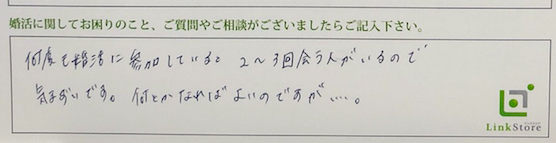 婚活に関してお困りのこと、ご質問やご相談がございましたらご記入下さい。
何度も婚活に参加している。2〜3回会う人がいるので
気まずいです。何とかなればよいのですが…。
LinkStore